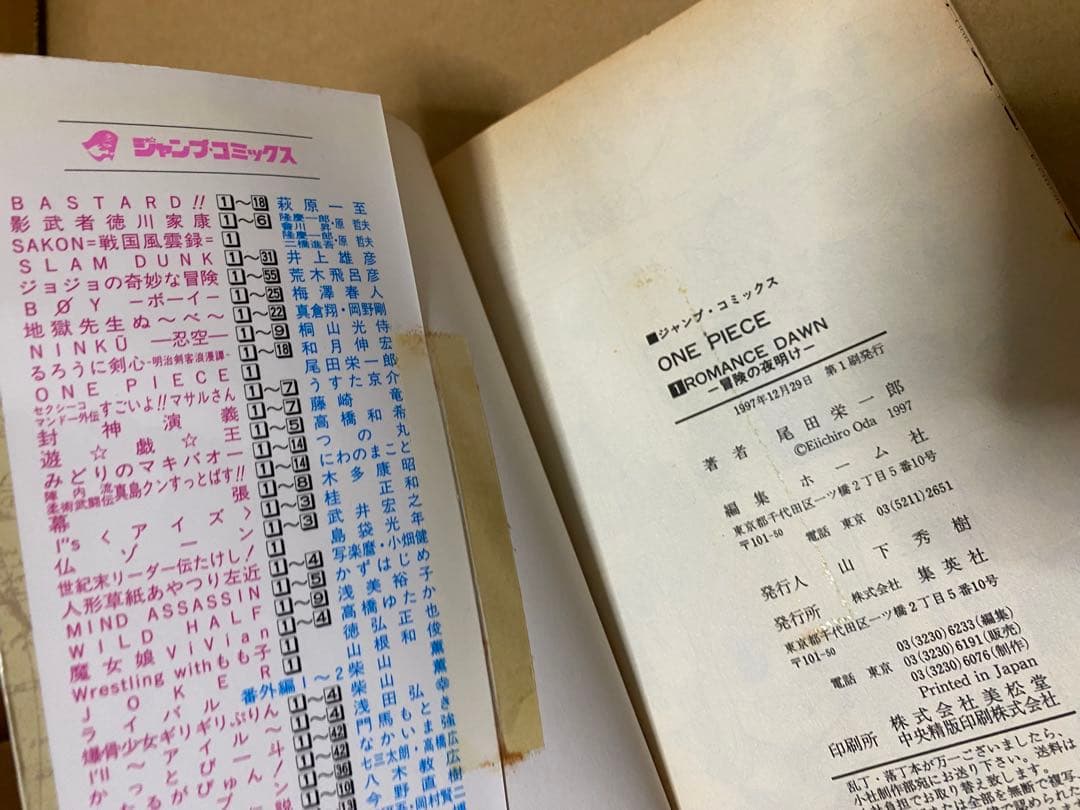 ジャンプ・コミックス
BASTARD!! 1〜18 萩原一至
影武者徳川家康 1〜6 隆慶一郎・會川昇・原哲夫
SAKON=戦国風雲録= 1 隆慶一郎・二橋進吾・原哲夫
SLAM DUNK 1〜31 井上雄彦
ジョジョの奇妙な冒険 1〜55 荒木飛呂彦
BØY −ボーイ− 1〜25 梅澤春人
地獄先生ぬ〜べ〜 1〜22 真倉翔・岡野剛
NINKŪ ―忍空― 1〜9 桐山光侍
るろうに剣心-明治剣客浪漫譚- 1〜18 和月伸宏
ONE PIECE 1 尾田栄一郎
セクシーコマンドー外伝すごいよ!!マサルさん 1〜7 うすた京介
封神演義 1〜7 藤崎竜
遊☆戯☆王 1〜5 高橋和希
みどりのマキバオー 1〜14 つの丸
陣内流柔術武闘伝真島クンすっとばす!! 1〜14 にわのまこと
幕張 1〜8 木多康昭
I"s〈アイズ〉 1〜3 桂正和
仏ゾーン 武井宏之
世紀末リーダー伝たけし! 島袋光年
人形草紙あやつり左近 写楽麿・小畑健
MIND ASSASSIN かずはじめ
WILD HALF 浅美裕子
魔女娘ViVian 高橋ゆたか
Wrestling withもも子 徳弘正也
JOKER 山根和俊
ライバル 柴山薫
爆骨少女ギリギリぷりん 柴山薫
番外編1〜2
■ジャンプ・コミックス
ONE PIECE
1 ROMANCE DAWN
−冒険の夜明け−
1997年12月29日 第1刷発行
著者 尾田栄一郎
©Eiichiro Oda 1997
編集 ホーム社
東京都千代田区一ツ橋2丁目5番10号
〒101-50 電話 東京 03(5211)2651
発行人 山下秀樹
発行所 株式会社 集英社
東京都千代田区一ツ橋2丁目5番10号
〒101-50
03(3230)6233(編集)
電話 東京 03(3230)6191(販売)
03(3230)6076(制作)
Printed in Japan
印刷所 株式会社美松堂
中央精版印刷株式会社
乱丁・落丁本が万一ございましたら、
小社制作部宛にお送り下さい。送料は